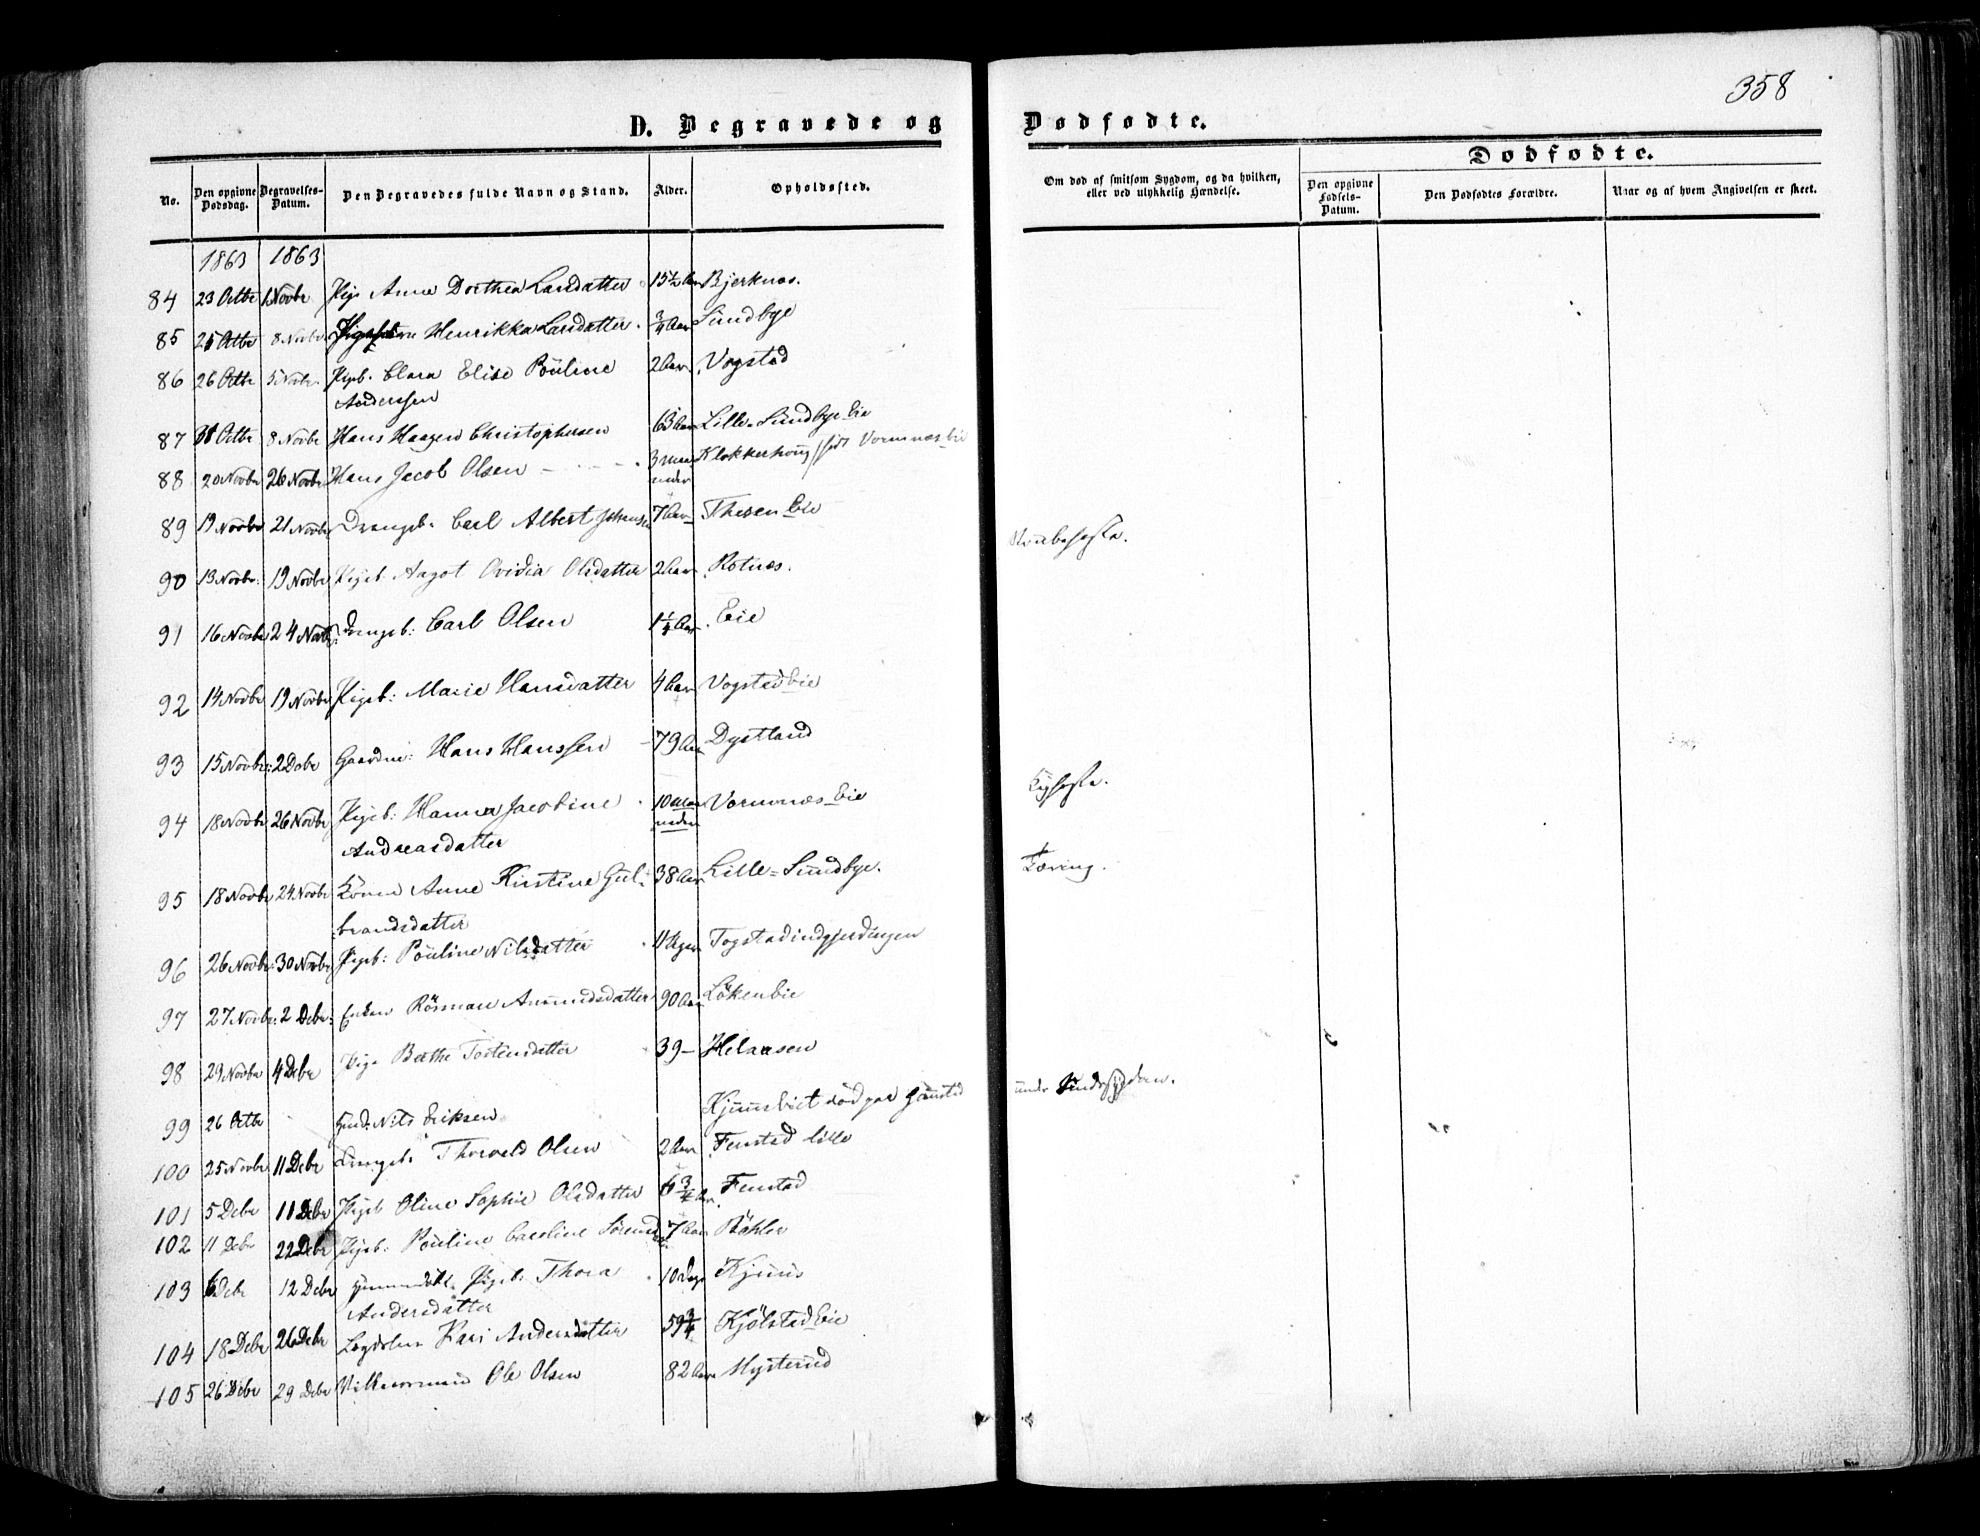 358
D. Begravede og Dødfødte.
Dødfødte.
No. Den opgivne Dødsdag. Begravelses-Datum. Den Begravedes fulde Navn og Stand. Alder. Opholdssted. Om død af smitsom Sygdom, og da hvilken, eller ved ulykkelig Hændelse. Den opgivne Fødsels-Datum. Den Dødfødtes Forældre. Naar og af hvem Angivelsen er skeet.
1863 1863
84 23 Octbr 1 Novbr Pige Anne Dorthea Larsdatter 15½ Aar Bjerknæs.
85 25 Octbr 8 Novbr Henrikka Larsdatter. ¾ Aar Sundbye
86 26 Octbr 5 Novbr. Pigeb. Clara Elise Pouline 2 Aar Vogstad
Anderssen
87 31 Octbr 8 Novbr Hans Haagen Christophersen 63 Aar Lille-Sundbye Eie
88 20 Novbr 26 Novbr Hans Jacob Olsen 3 Maa Klokkerhoug / født Vormnæs Eie
neder
89 19 Novbr 21 Novbr Drengeb. Carl Albert Johansen 7 Aar Thesen Eie
90 13 Novbr. 19 Novbr Pigeb Aagot Ovidia Olsdatter 2 Aar Rotnæs.
91 16 Novbr 24 Novbr Drengeb: Carl Olsen 1¼ Aar Eie
92 14 Novbr 19 Novbr Pigeb: Marie Hansdatter 4 Aar Vogstad Eie
93 15 Novbr: 2 Debr Gaardm: Hans Hanssen 79 Aar Dystland
94 18 Novbr 26 Novbr Pigeb: Hanna Jacobine 10 Maa Vormnæs Eie
neder
Andreasdatter
95 18 Novbr 24 Novbr Konen Anne Kirstine Gul- 38 Aar Lille-Sundbye. Tæring.
brandsdatter
96 26 Novbr: 30 Novbr Pigeb: Pouline Nilsdatter Togstadindgjerdingen
97 27 Novbr. 2 Debr: Enken Amundsdatter 90 Aar Løken Eie
98 29 Novbr 4 Debr Pige Berthe Tostensdatter 39 – Helaasen
99 26 Octbr Nils Eriksen død paa
100 25 Novbr 11 Debr Drengeb: Thorvald Olsen 2 Aar Fenstad lille
101 5 Debr 11 Debr Pigeb Oline Sophie Olsdatter 6¾ Aar. Fenstad
102 11 Debr 22 Debr Pigeb: Pouline Caroline 7 Aar Bøhler
103 6 Debr 12 Debr Pigeb: Thora 10 Dage Kjuus
Andersdatter
104 18 Debr 26 Debr Kari Andersdatter 59¾ Kjølstad Eie
105 26 Debr 29 Debr Ole Olsen 82 Aar Mysterud